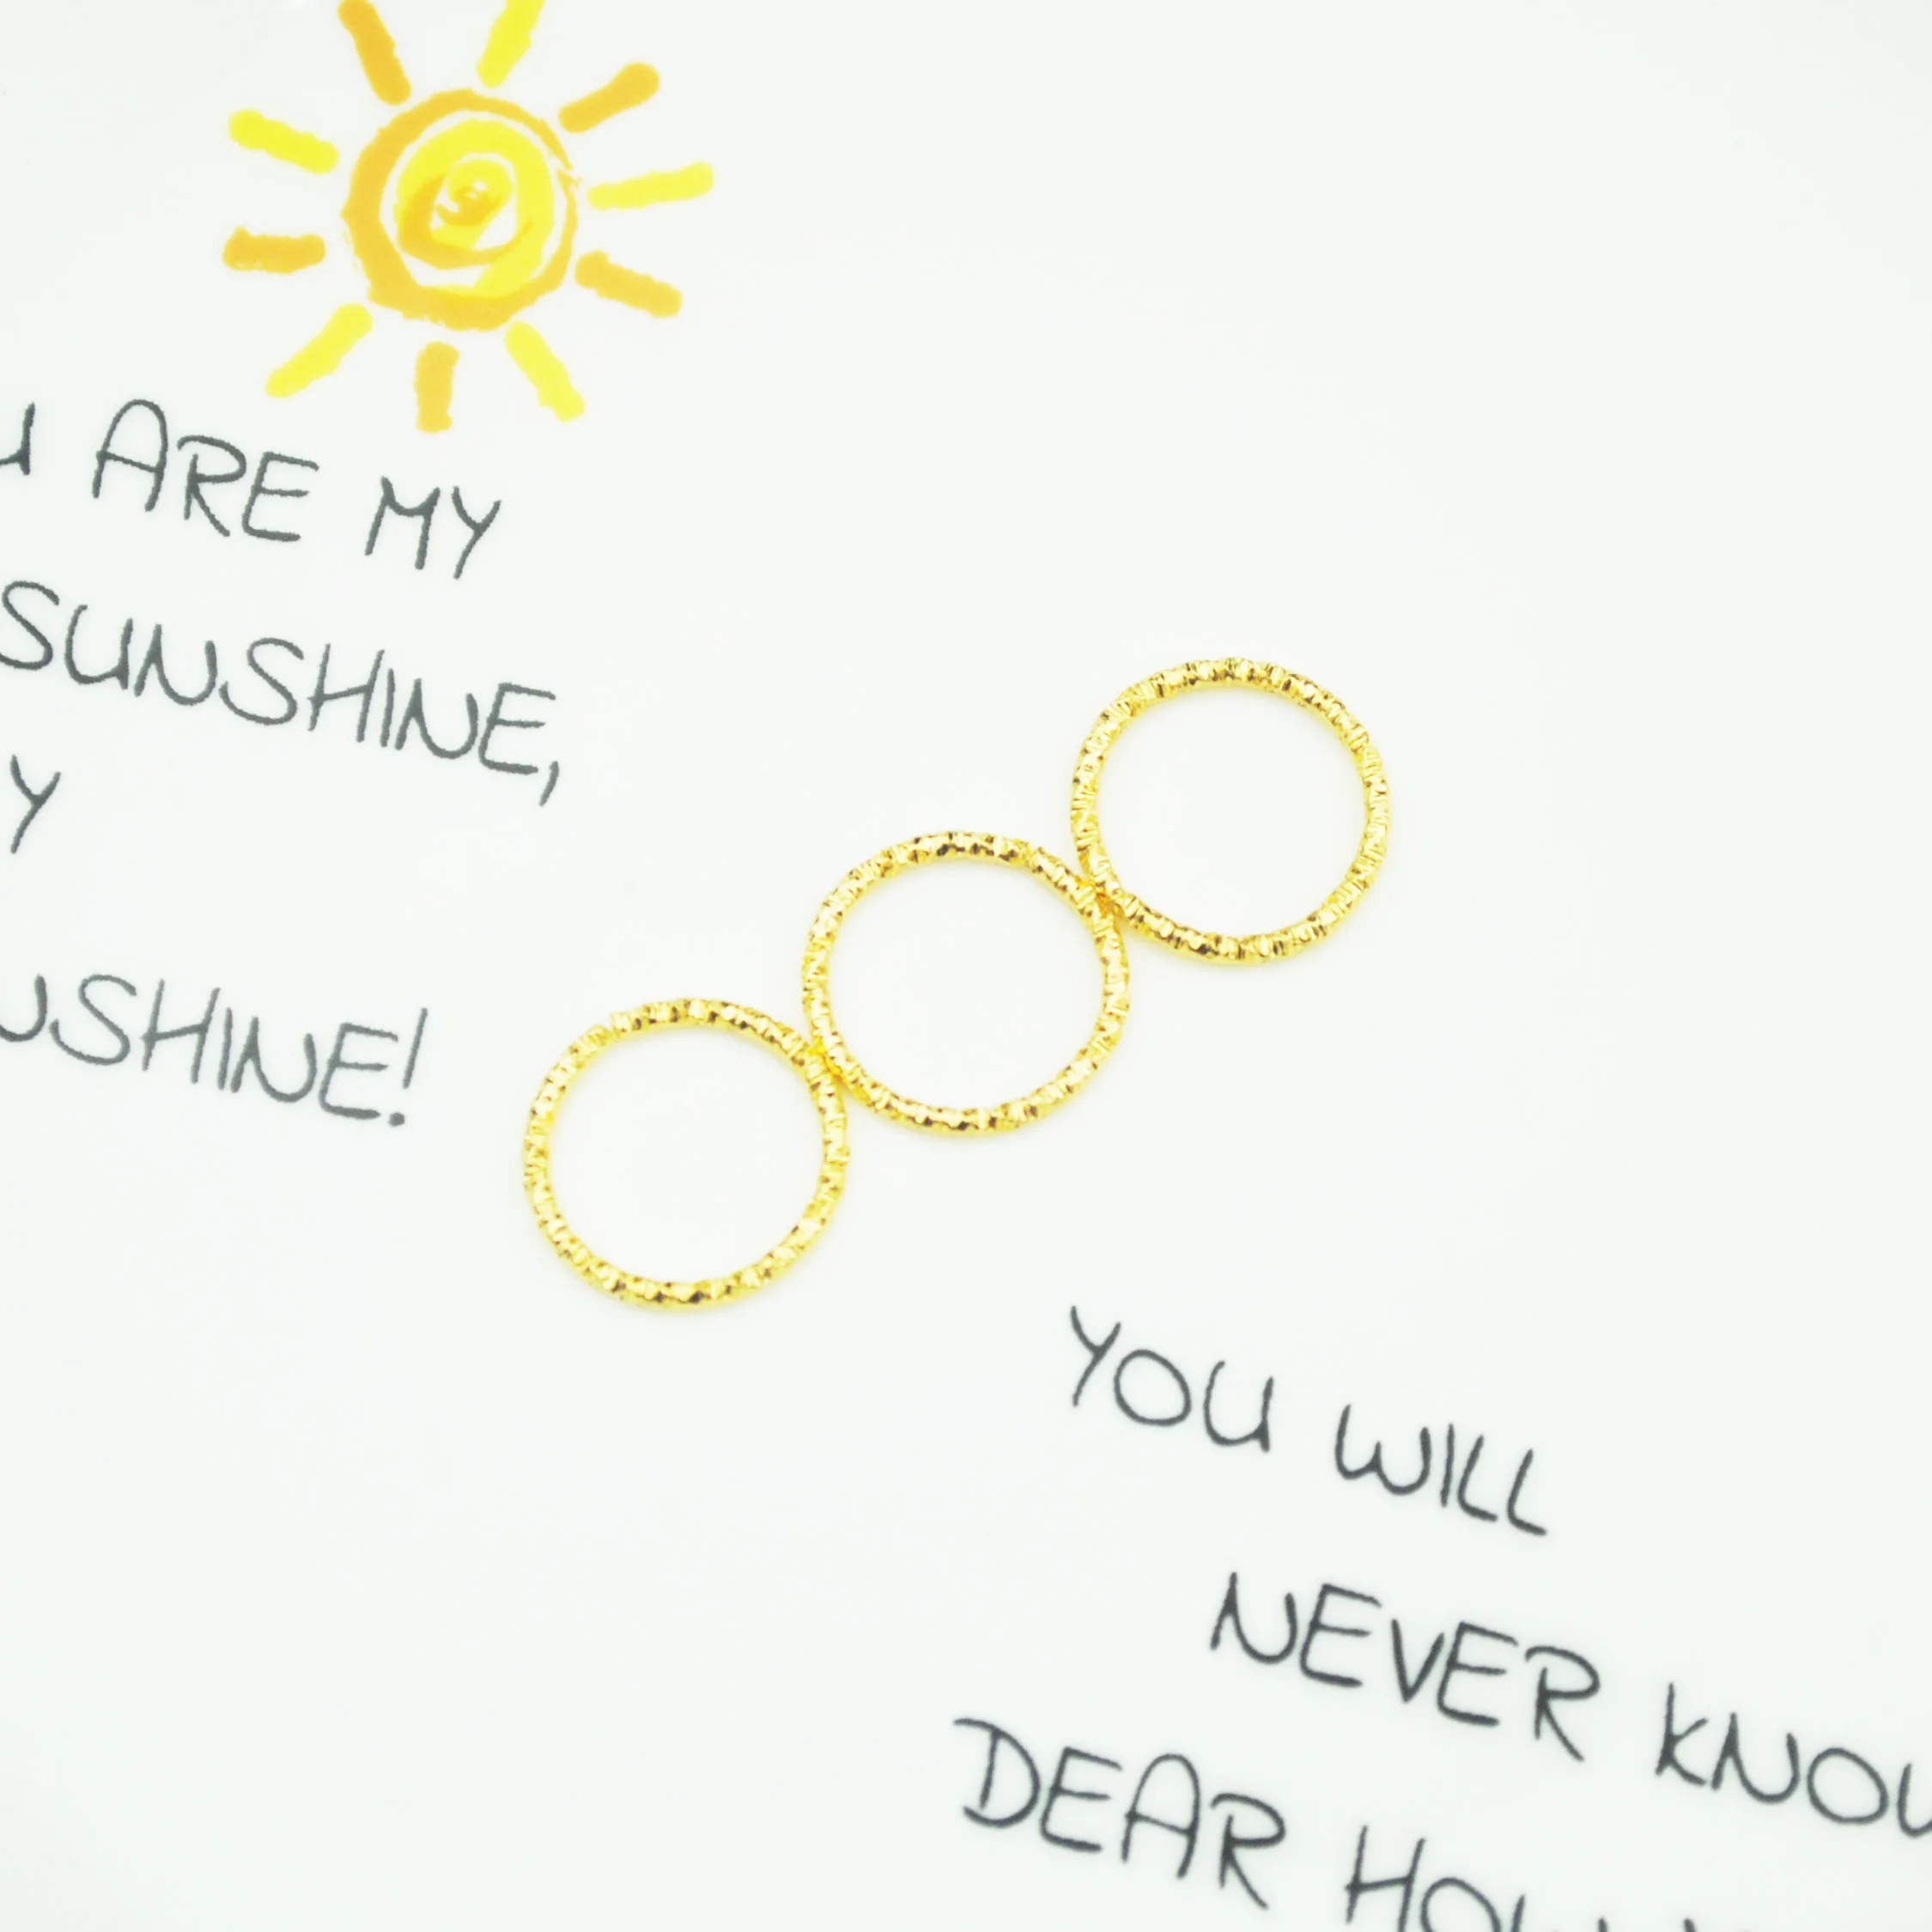 ARE MY
SUNSHINE,
Y
USHINE!
YOU WILL
NEVER KNOW
DEAR HOW